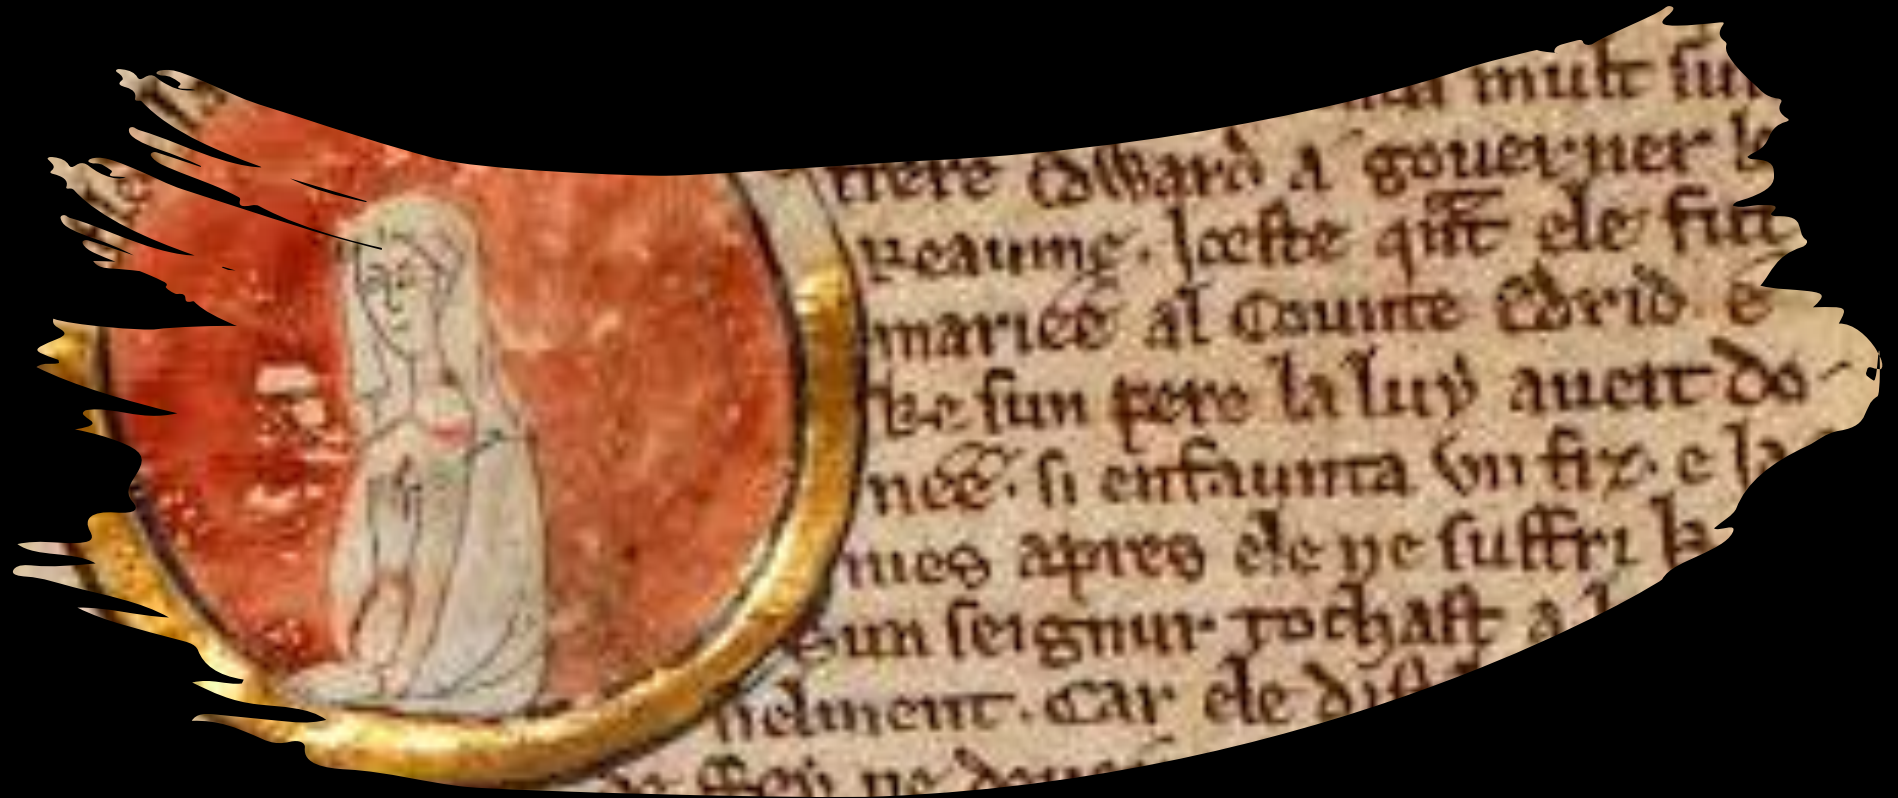 mult sun
frere Edward a gouerner le
reaume. Iceste qnt ele fut
mariee al Counte Edrid. e
ke sun pere la luy aueit do
nee. si enfaunta vn fiz. e la
mes apres ele ne suffri ke
sun seignur tochast a l
nelment. Car ele dist
ne